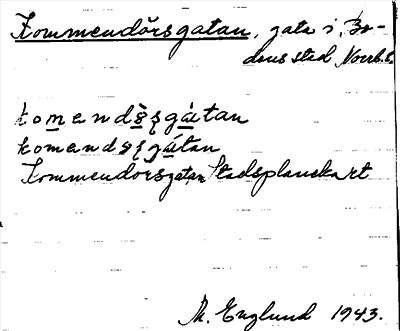 Kommendörsgatan, gata i Bo-
dens stad Norrb.l.
komendø̀ʂgátan
komendøʂgátan
Kommendörsgatan Stadsplanekart
M. Englund 1943.